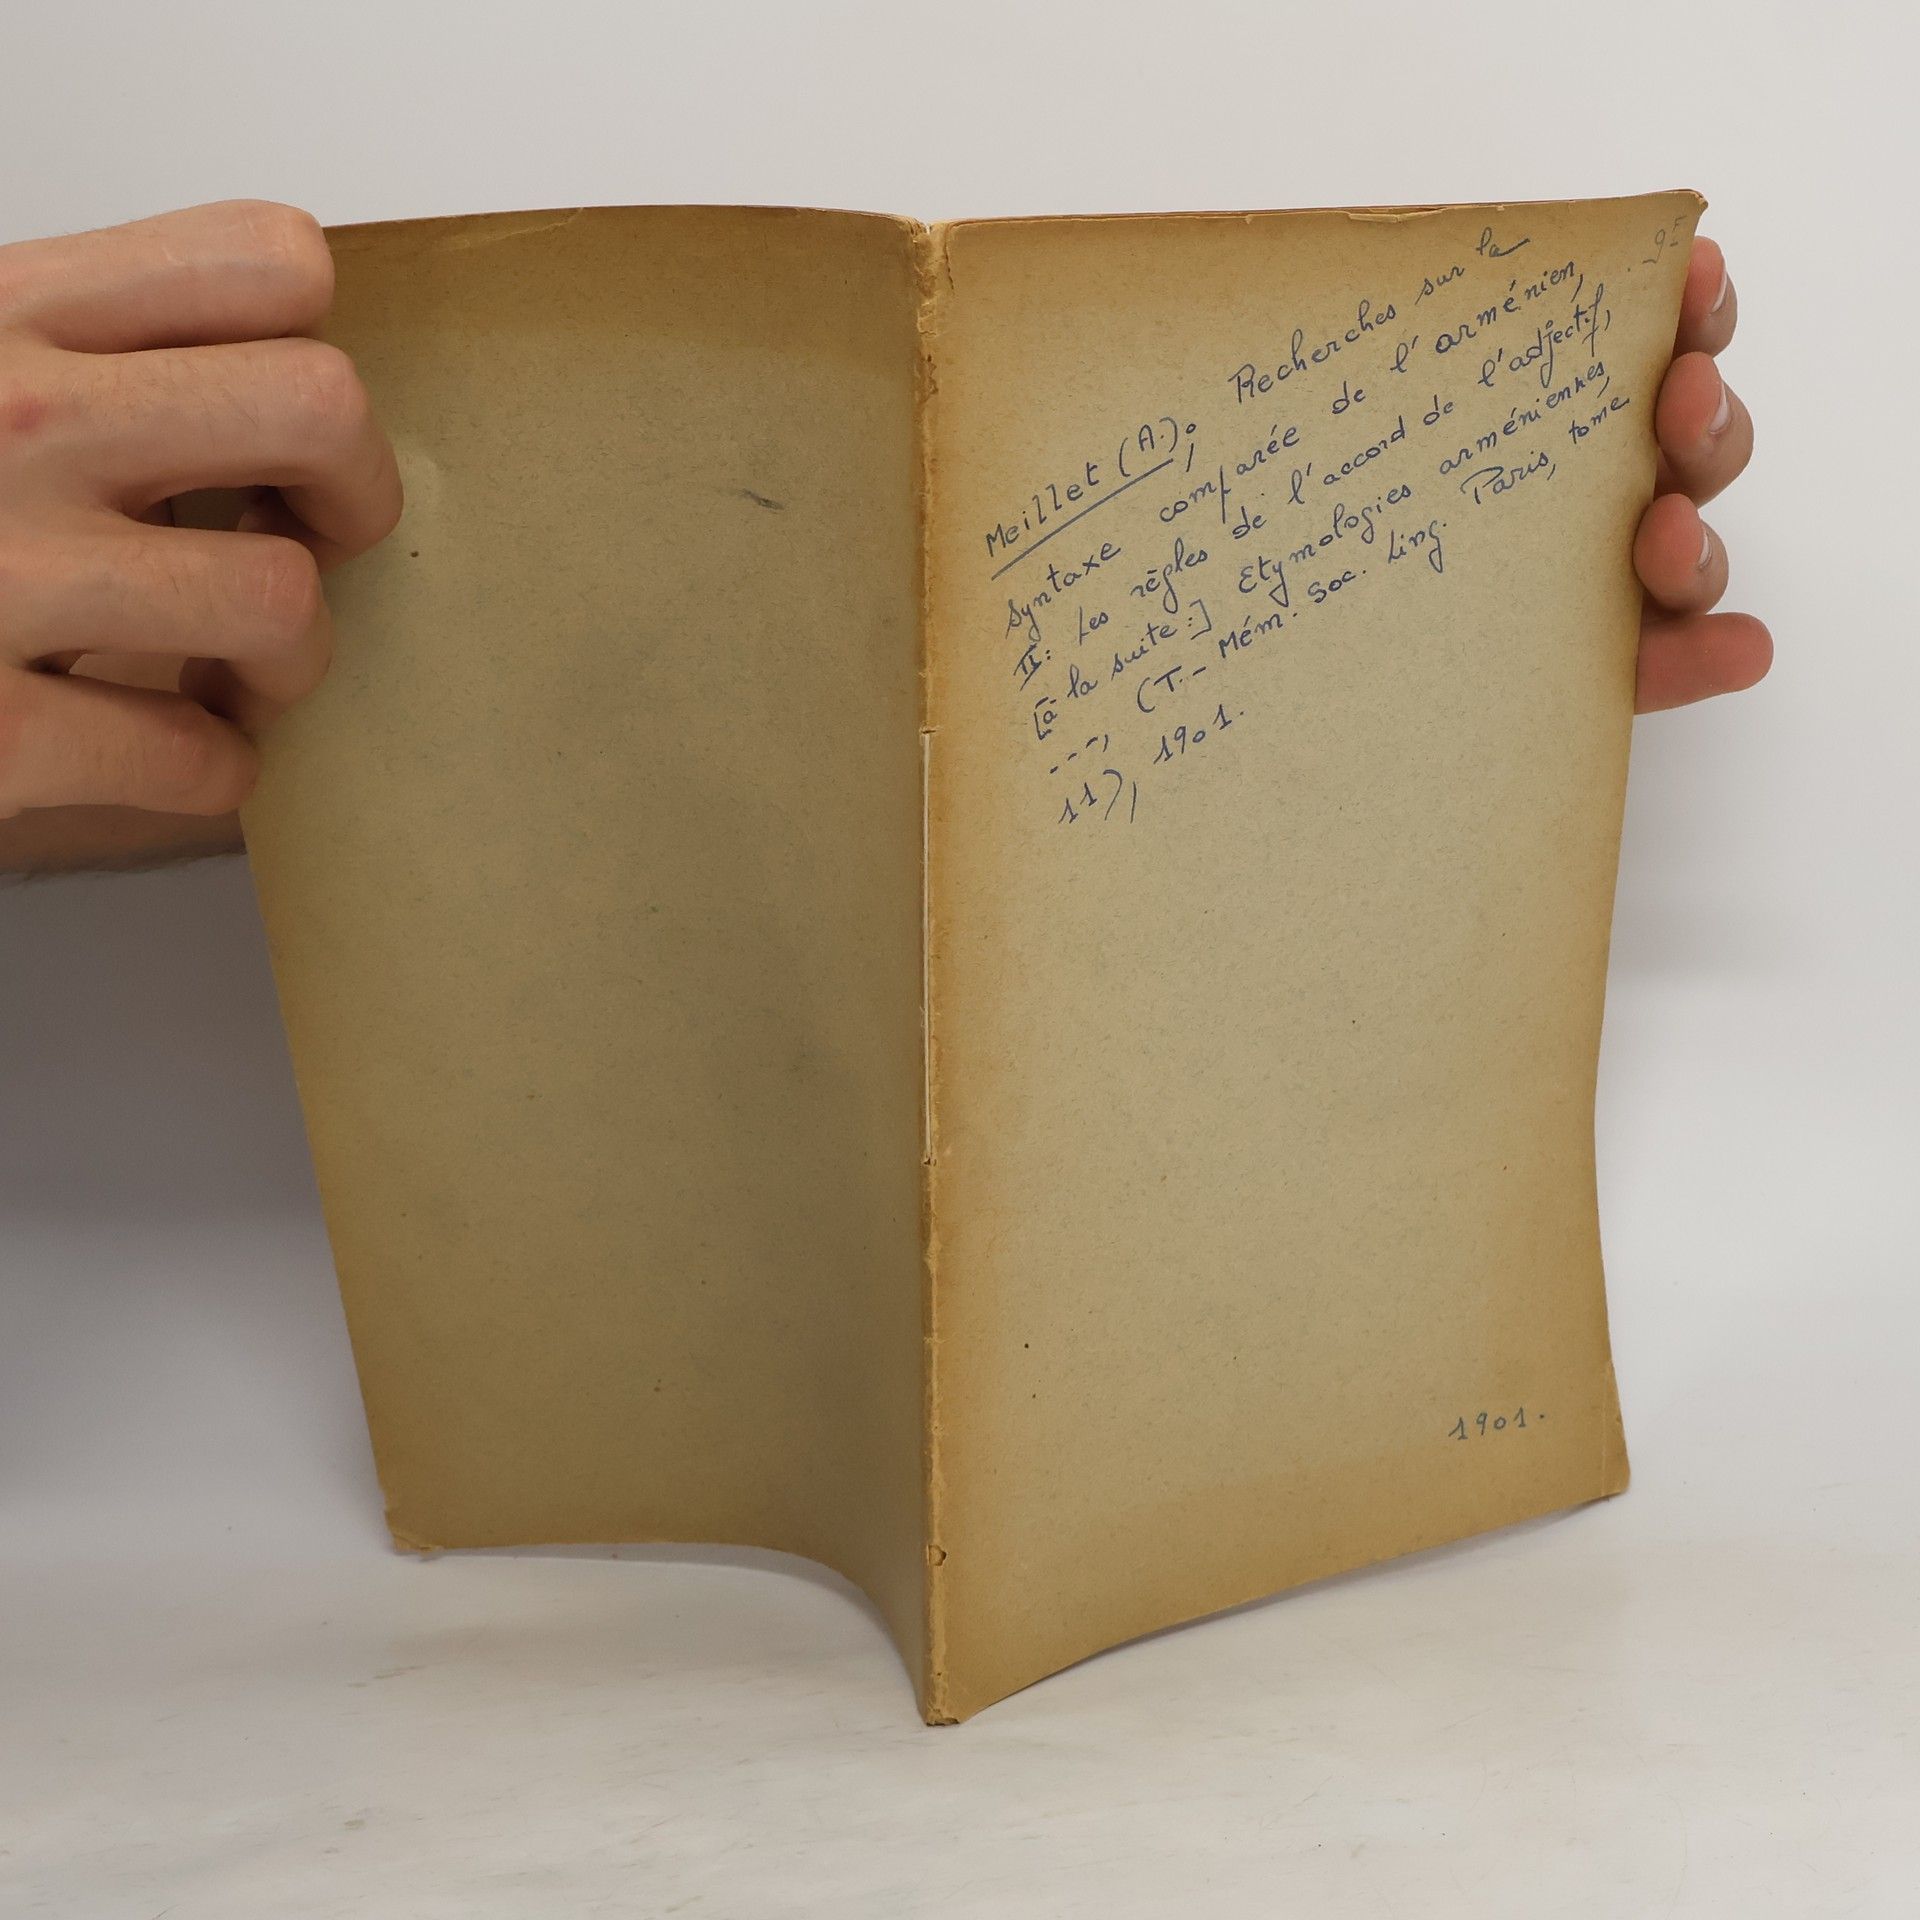 Meillet (A.); Recherches sur la
syntaxe comparée de l'arménien,
II: Les règles de l'accord de l'adjectif,
[à la suite:] Etymologies arméniennes,
---, (T.- Mém. Soc. Ling. Paris, tome
11), 1901.
1901.